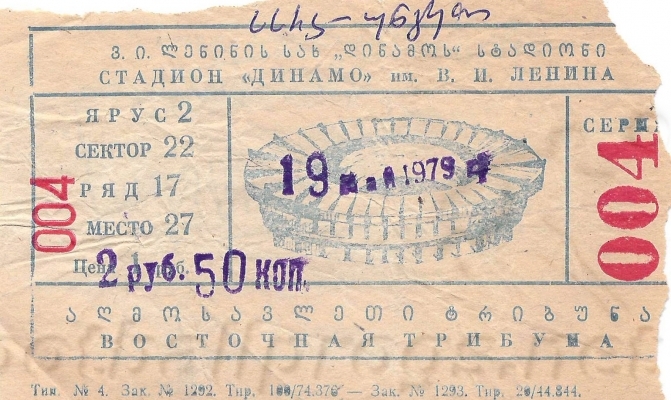 სსრკ - უნგრეთი
ვ. ი. ლენინის სახ „დინამოს“ სტადიონი
СТАДИОН «ДИНАМО» им. В. И. ЛЕНИНА
ЯРУС 2
СЕКТОР 22
РЯД 17
МЕСТО 27
Цена
2 руб. 50 коп.
004
19 мая 1979 г
СЕРИЯ
004
აღმოსავლეთი ტრიბუნა
ВОСТОЧНАЯ ТРИБУНА
Тип. № 4. Зак. № 1292. Тир. /74.376 — Зак. № 1293. Тир. 20/44.844.